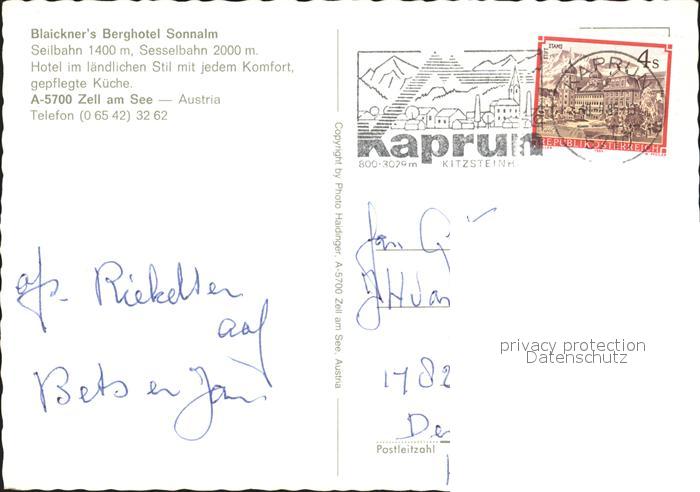 Blaickner's Berghotel Sonnalm
Seilbahn 1400 m, Sesselbahn 2000 m.
Hotel im ländlichen Stil mit jedem Komfort,
gepflegte Küche.
A-5700 Zell am See — Austria
Telefon (0 65 42) 32 62
Kaprun
800-3029m KITZSTEINH
STIFT STAMS
4 S
REPUBLIK ÖSTERREICH
KAPRUN
Copyright by Photo Haidinger, A-5700 Zell am See, Austria
Jan G
1782
De
Postleitzahl
Bets en Jan
privacy protection
Datenschutz